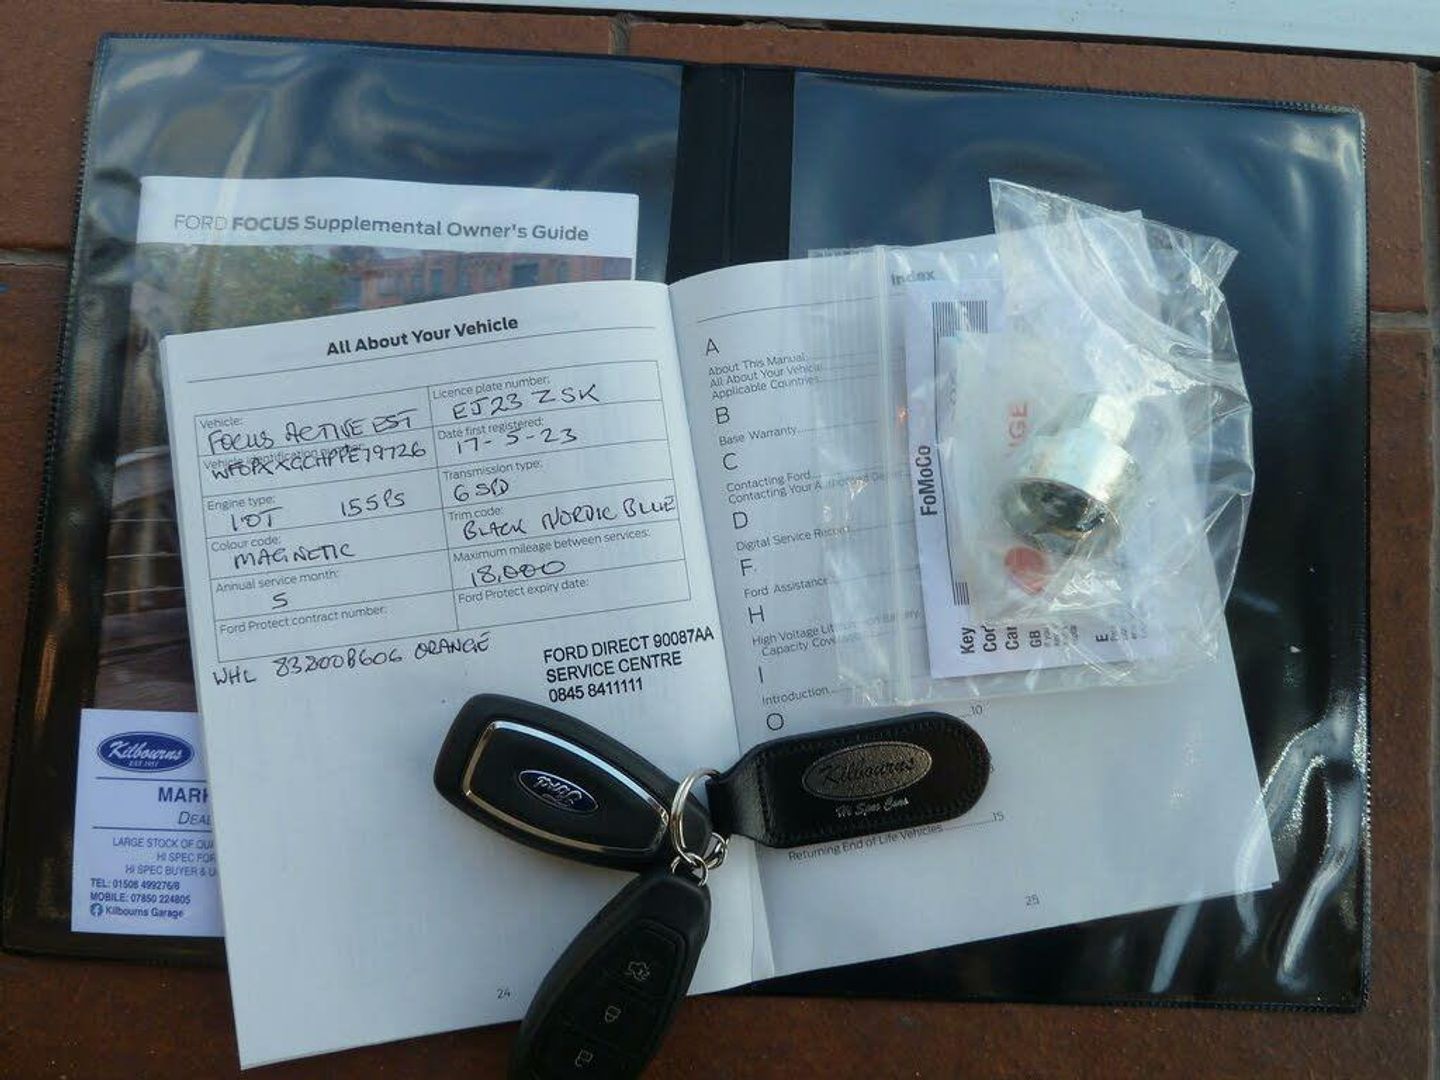 FORD FOCUS Supplemental Owner's Guide
All About Your Vehicle
Vehicle:
FOCUS ACTIVE EST
Licence plate number:
EJ23 ZSK
Vehicle identification
WF0PXXGCHPPE79726
Date first registered:
17-5-23
Engine type:
1.0T 155PS
Transmission type:
6 SPD
Colour code:
MAGNETIC
Trim code:
BLACK NORDIC BLUE
Annual service month:
5
Maximum mileage between services:
18,000
Ford Protect contract number:
Ford Protect expiry date:
WHL 83200B606 ORANGE
FORD DIRECT 90087AA
SERVICE CENTRE
0845 8411111
24
Index
A
About This Manual
All About Your Vehicle
Applicable Countries
B
Base Warranty
C
Contacting Ford
Contacting Your Authorised
D
Digital Service Record
F
Ford Assistance
H
High Voltage Battery
Capacity
I
Introduction
O
10
15
Returning End of Life Vehicles
25
FoMoCo
Key
GB
E
Kilbourns
EST 1951
MARK
LARGE STOCK OF
HI SPEC FOR
HI SPEC BUYER &
TEL: 01508 499276/8
MOBILE: 07850 224805
Kilbourns Garage
Ford
Kilbourns
We Spec Cars